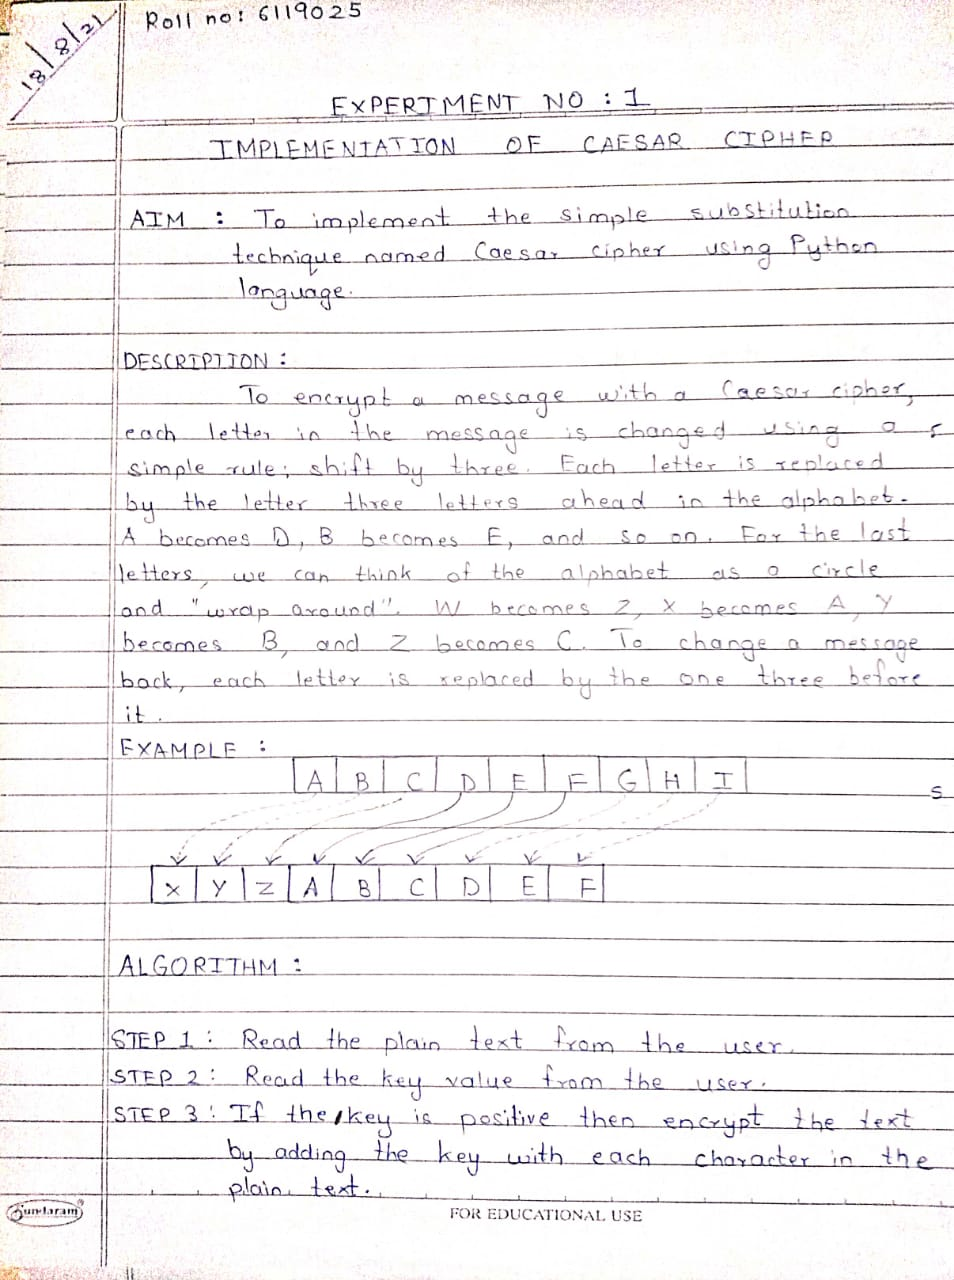 18/8/21
Roll no: 6119025
EXPERIMENT NO : 1
IMPLEMENTATION OF CAESAR CIPHER
AIM : To implement the simple substitution
technique named Caesar cipher using Python
language.
DESCRIPTION :
To encrypt a message with a Caesar cipher,
each letter in the message is changed using a
simple rule; shift by three. Each letter is replaced
by the letter three letters ahead in the alphabet.
A becomes D, B becomes E, and so on. For the last
letters, we can think of the alphabet as a circle
and "wrap around". W becomes Z, X becomes A, Y
becomes B, and Z becomes C. To change a message
back, each letter is replaced by the one three before
it.
EXAMPLE :
A B C D E F G H I
S
X Y Z A B C D E F
ALGORITHM :
STEP 1 : Read the plain text from the user.
STEP 2 : Read the key value from the user.
STEP 3 : If the key is positive then encrypt the text
by adding the key with each character in the
plain text.
Sundaram
FOR EDUCATIONAL USE